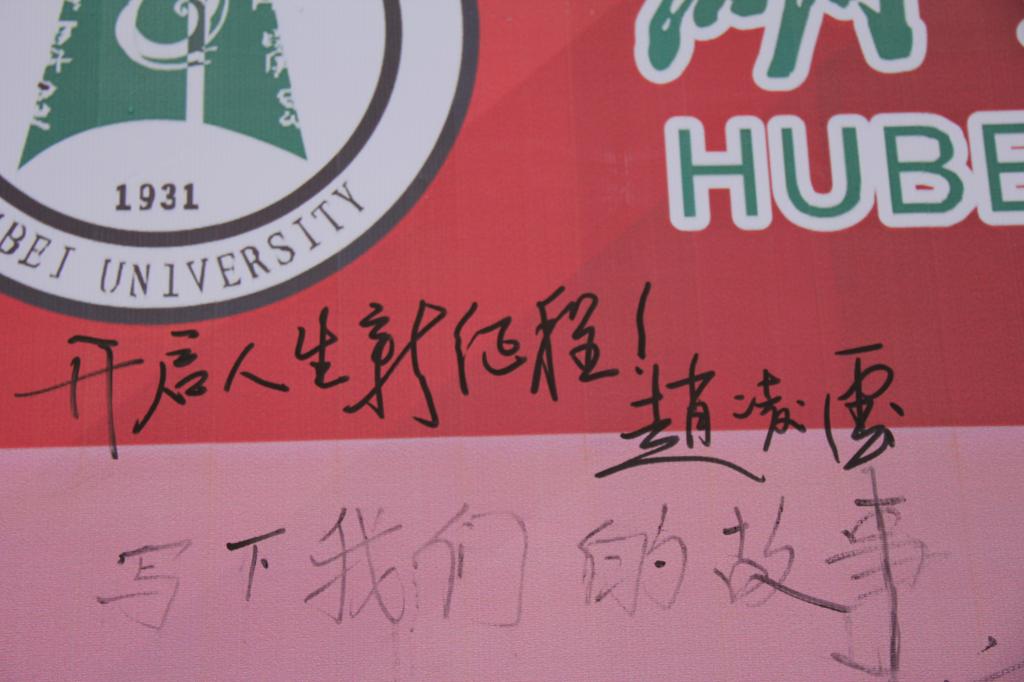 1931
BEI UNIVERSITY
HUBE
开启人生新征程！
趙凌雲
写下我们的故事